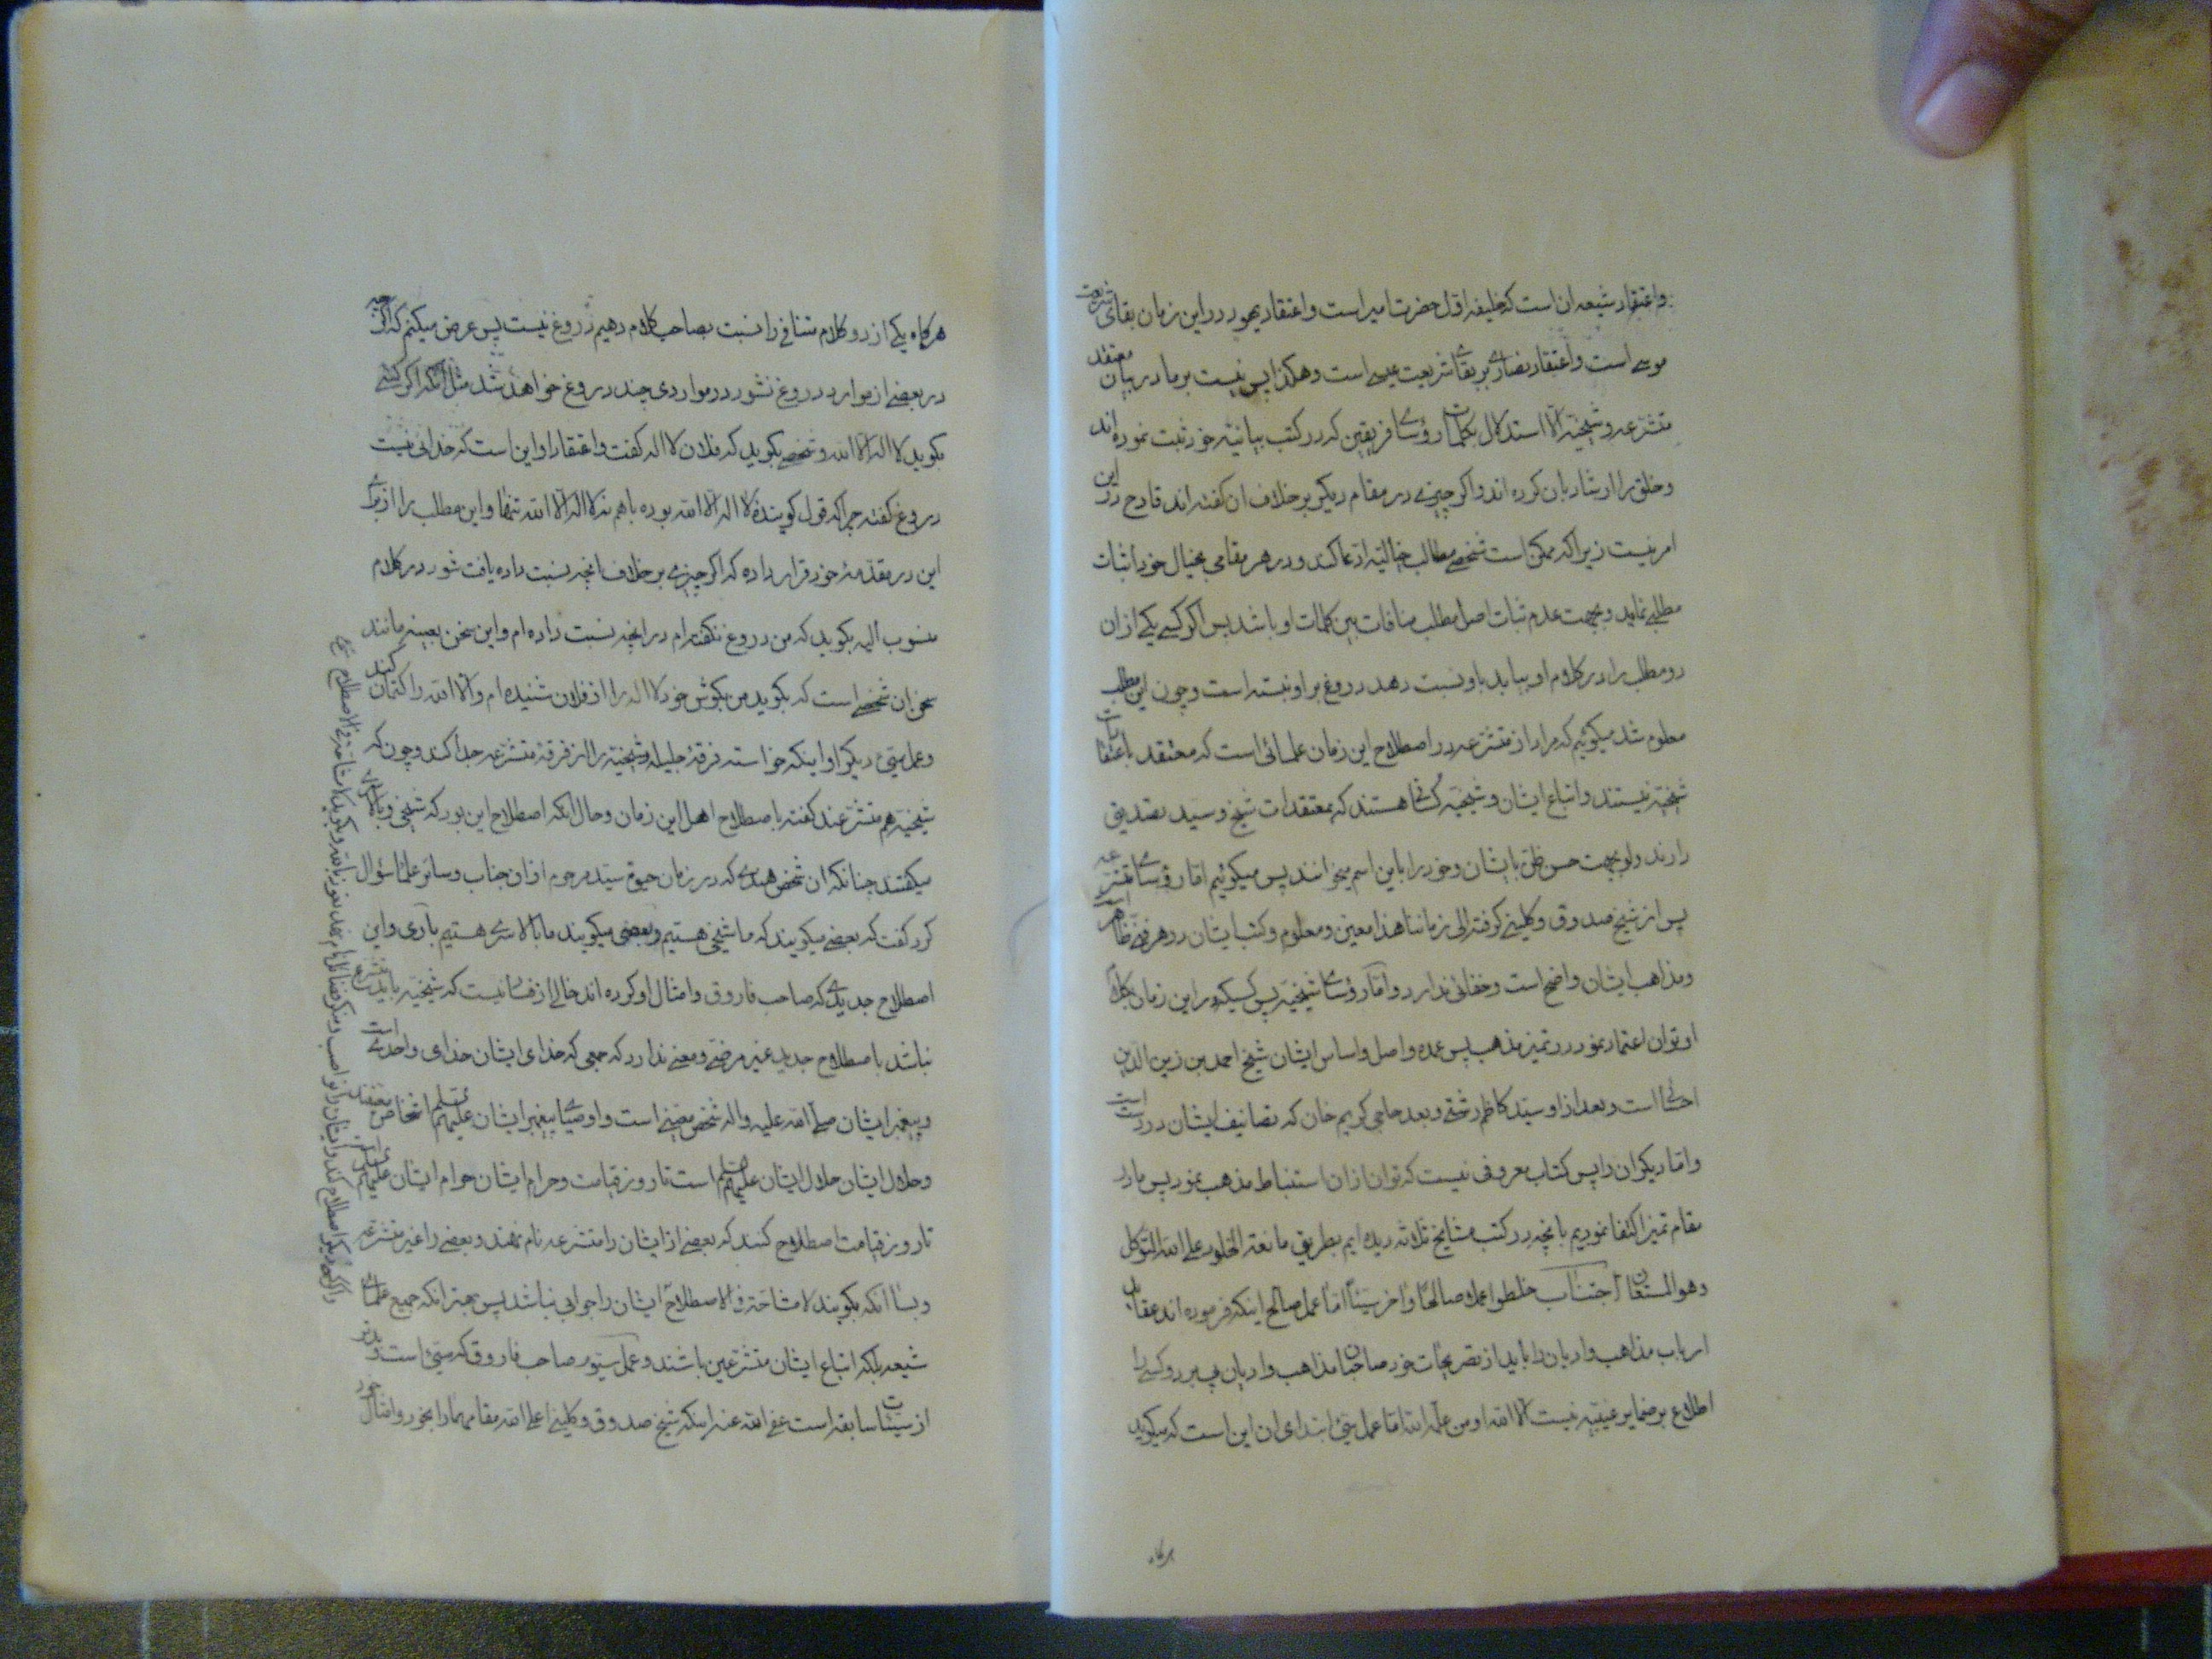 واعتقاد شیعه ان است که خلیفه اول حضرت امیر است و اعتقاد یهود در این زمان بقای شریعت
موسی است و اعتقاد نصاری بر بقاء شریعت عیسی است وهکذا پس نیست بر ما در بیان معتقد
متشرعه و شیخیه الا استدلال بکلمات رؤسای فریقین که در کتب بیانیه خود ثبت نموده اند
وخلق را ارشاد بان کرده اند و اکر چیزی در مقام دیکر بر خلاف ان کفته اند قادح در این
امر نیست زیرا که ممکن است شخصی مطالب خیالیه ادعا کند و در هر مقامی بخیال خود اثبات
مطلبی نماید و بجهت عدم ثبات اصل مطلب منافات بین کلمات او باشد پس اکر کسی یکی از ان
دو مطلب را در کلام او بیابد باو نسبت دهد دروغ بر او نبسته است و چون این مطلب
معلوم شد میکوئیم که مراد از متشرعه در اصطلاح این زمان علمائی است که معتقد باعتقادات
شیخیه نیستند و اتباع ایشان و شیخیه کسانی هستند که بمعتقدات شیخ و سید تصدیق
دارند ولو بجهت حسن ظن بایشان وخود را باین اسم میخوانند پس میکوئیم اما رؤسای متشرعه
پس از شیخ صدوق و کلینی کرفته الی زماننا هذا معین و معلوم و کتب ایشان در هر فنی ظاهر است
ومذاهب ایشان واضح است وخفائی ندارد و اما رؤسای شیخیه پس کسیکه در این زمان بکلام
او توان اعتماد نمود در تمیز مذهب پس عمده و اصل و اساس ایشان شیخ احمد بن زین الدین
احسائی است و بعد از او سید کاظم رشتی و بعد حاجی کریم خان که تصانیف ایشان در دست است
واما دیکران را پس کتاب معروفی نیست که توان از ان استنباط مذهب نمود پس ما در
مقام تمیز اکتفا نمودیم بانچه در کتب مشایخ ثلاثه دیده ایم بطریق مانعة الخلو و علی الله التوکل
وهو المستعان اجتناب خلطوا عملا صالحا و اخر سیئا اما عمل صالح اینکه فرموده اند عقاید
ارباب مذاهب و ادیان را باید از تصریحات خود صاحبان مذاهب و ادیان پی برد و کسی را
اطلاع بر ضمایر غیبیه نیست الا الله او من علمه الله اما عمل سیئ ابتدای ان این است که میکوید
هرکاه
هرکاه یکی از دو کلام متنافی را نسبت بصاحب کلام دهیم دروغ نیست پس عرض میکنم که اکرچه
در بعضی از موارد دروغ نشود در مواردی چند دروغ خواهد شد مثل انکه اکر کسی
بکوید لا اله الا الله و شخصی بکوید که فلان لا اله کفت و اعتقاد او این است که خدائی نیست
دروغ کفته چرا که قول کوینده لا اله الا الله بوده باهم نه لا اله الا الله تنها و این مطلب را از برای
این در مقدمه خود قرار داده که اکر چیزی بر خلاف انچه نسبت داده یافت شود در کلام
منسوب الیه بکوید که من دروغ نکفته ام در انچه نسبت داده ام و این سخن بعینه مانند
سخن ان شخصی است که بکوید من بکوش خود لا اله را از فلان شنیده ام و الا الله را کتمان کند
وعمل سیئ دیکر او اینکه خواسته فرقه جلیله شیخیه را از فرقه متشرعه جدا کند و چون که
شیخیه هم متشرعند کفته باصطلاح اهل این زمان و حال انکه اصطلاح این بود که شیخی و بالاسری
میکفتند چنانکه ان شخص هندی که در زمان حیوة سید مرحوم از ان جناب و سائر علما سؤال
کرد کفت که بعضی میکویند که ما شیخی هستیم و بعضی میکویند ما بالاسری هستیم باری و این
اصطلاح جدیدی که صاحب فاروق و امثال او کرده اند خالی از فساد نیست که شیخیه باید متشرع
نباشند باصطلاح جدید غیر مرضی و معنی ندارد که جمعی که خدای ایشان خدای واحد است
وپیغمبر ایشان صلی الله علیه واله شخص معینی است و اوصیای پیغمبر ایشان علیهم السلم اشخاص معینند
وحلال ایشان حلال ایشان علیهم السلم است تا روز قیامت و حرام ایشان حرام ایشان علیهم السلم است
تا روز قیامت اصطلاح کنند که بعضی از ایشان را متشرعه نام نهند و بعضی را غیر متشرعه
وبسا انکه بکویند لا مشاحة فی الاصطلاح ایشان را جوابی نباشد پس بهتر انکه جمیع علمای
شیعه بلکه اتباع ایشان متشرعین باشند و عمل سیوم صاحب فاروق که سیئ است و بدتر
از سیئات سابقه است عفی الله عنه اینکه شیخ صدوق و کلینی اعلی الله مقامهما را بخود و امثال خود